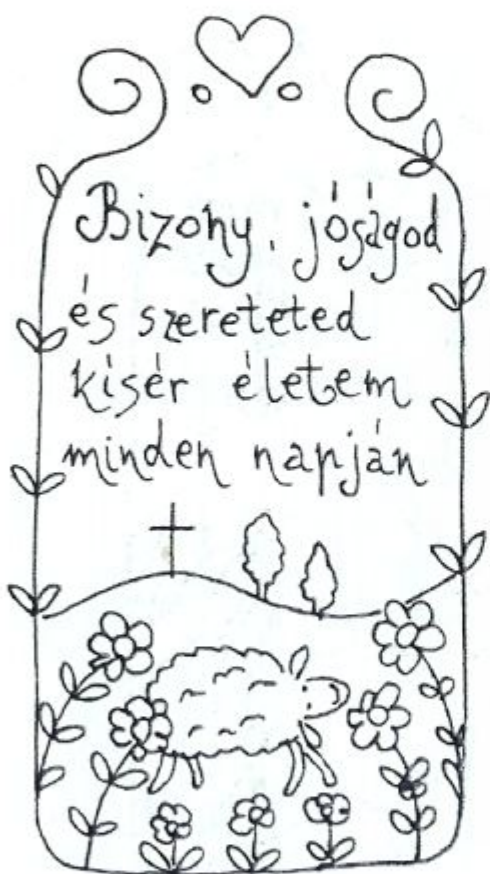 Bizony, jóságod
és szereteted
kísér életem
minden napján